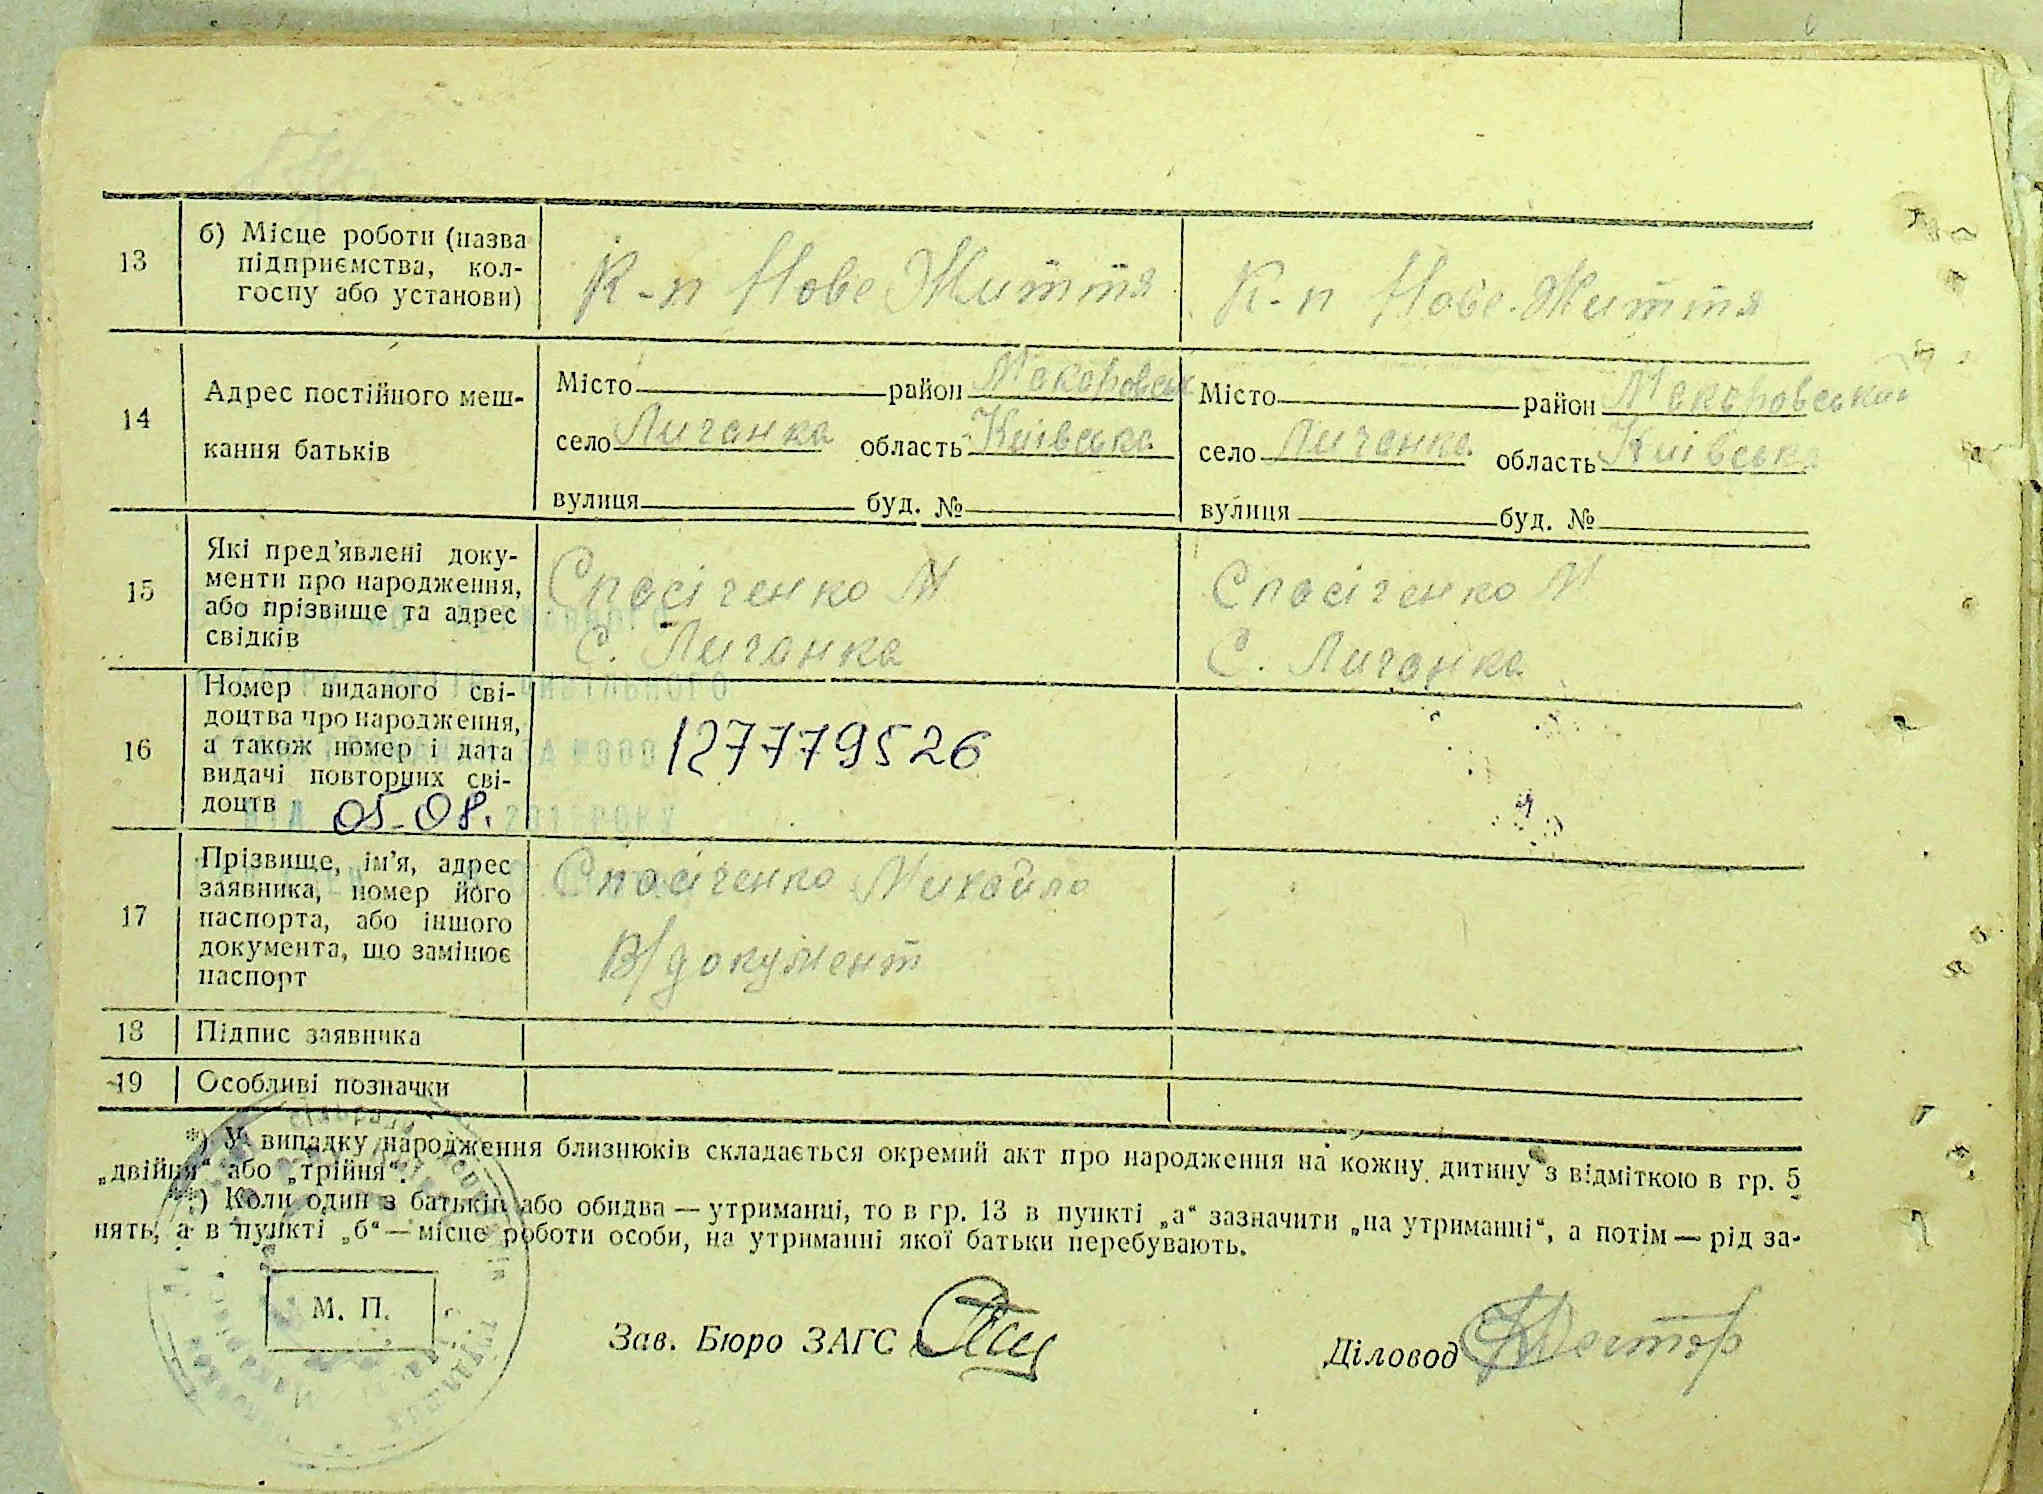 13
б) Місце роботи (назва
підприємства, кол-
госпу або установи)
К-п Нове Життя
К-п Нове Життя
14
Адрес постійного меш-
кання батьків
Місто район Макаровськ
село Личанка область Київська
вулиця буд. №
Місто район Макаровський
село Личанка область Київська
вулиця буд. №
15
Які пред’явлені доку-
менти про народження,
або прізвище та адрес
свідків
Спасіченко М
с. Личанка
Спасіченко М
с. Личанка
16
Номер виданого сві-
доцтва про народження,
а також номер і дата
видачі повторних сві-
доцтв 05.08.
127779526
17
Прізвище, ім’я, адрес
заявника, номер його
паспорта, або іншого
документа, що замінює
паспорт
Спасіченко Михайло
В/документ
18 Підпис заявника
19 Особливі позначки
*) У випадку народження близнюків складається окремий акт про народження на кожну дитину з відміткою в гр. 5
„двійня“ або „трійня“.
**) Коли один з батьків або обидва — утриманці, то в гр. 13 в пункті „а“ зазначити „на утриманні“, а потім — рід за-
нять, а в пункті „б“ — місце роботи особи, на утриманні якої батьки перебувають.
М. П.
Зав. Бюро ЗАГС
Діловод